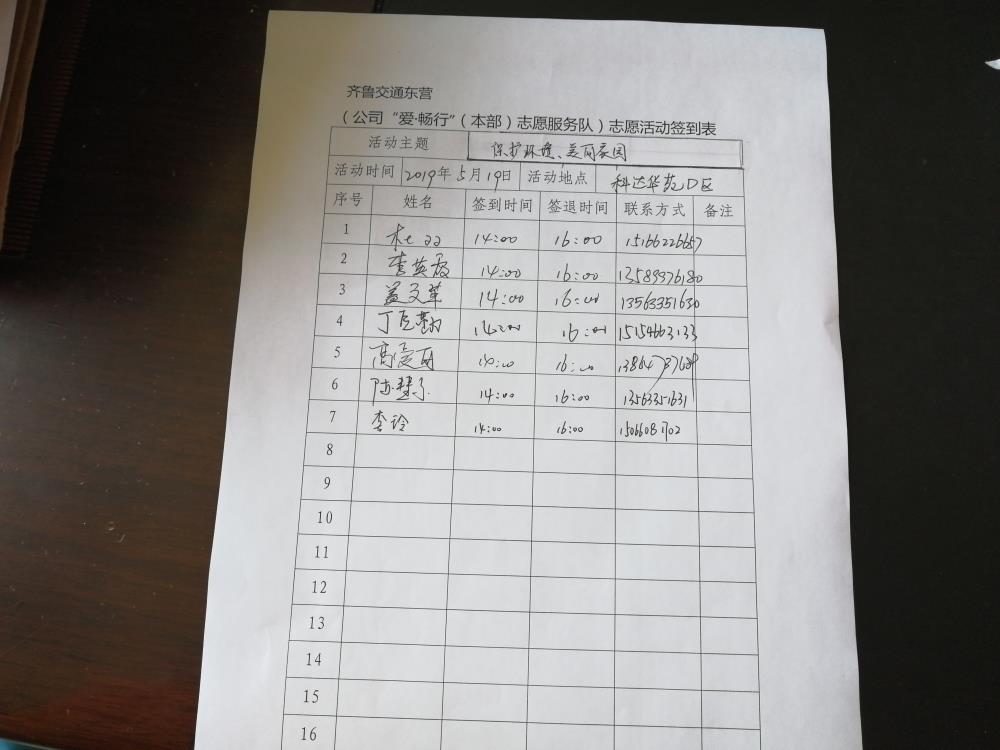 齐鲁交通东营
（公司“爱·畅行”（本部）志愿服务队）志愿活动签到表
活动主题 保护环境、美丽家园
活动时间 2019年5月19日 活动地点 科达华苑D区
序号 姓名 签到时间 签退时间 联系方式 备注
1 14:00 16:00 15166226657
2 李英霞 14:00 16:00 13589976180
3 盖文革 14:00 16:00 13563351630
4 14:00 16:00 15154663133
5 14:00 16:00
6 陈慧子 14:00 16:00 13563351631
7 李玲 14:00 16:00 15066081702
8
9
10
11
12
13
14
15
16